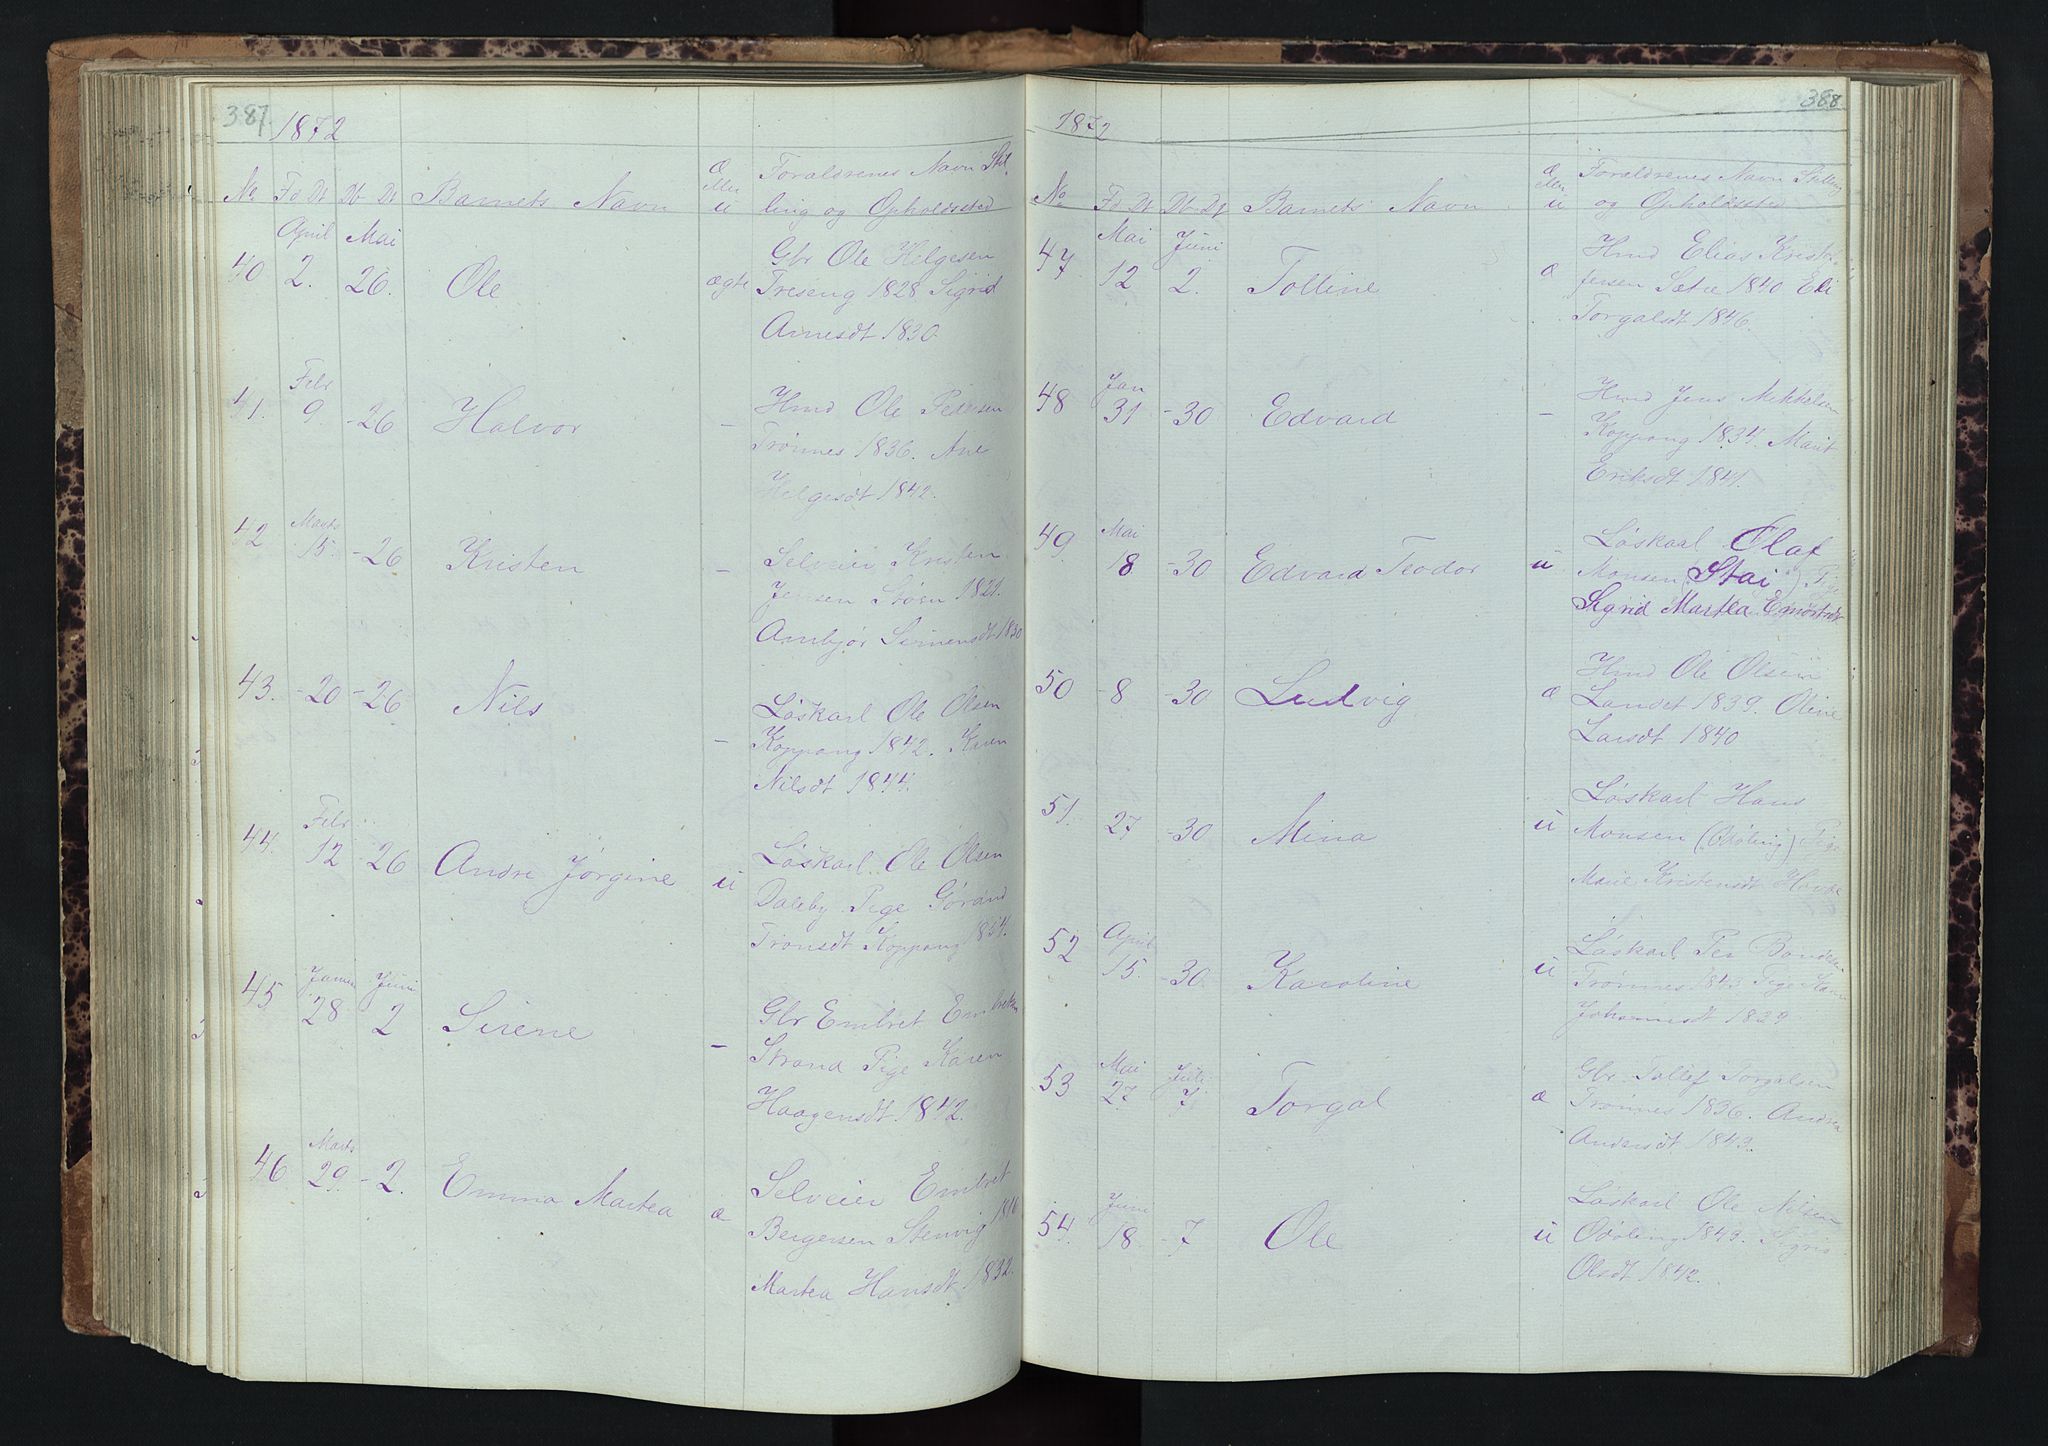 387
1872
No Fd Dt Db Dt Barnets Navn Æ eller U Forældrenes Navn Stil-
ling og Opholdssted
April Mai
40 2. 26. Ole ægte Gbr Ole Helgesen
Treseng 1828 Sigrid
Arnesdt 1830.
Febr
41. 9. -26 Halvor - Hmd Ole Pedersen
Trønnes 1836. Ane
Helgesdt 1842.
Marts
42 15. -26 Kristen - Selveier Kristen
Jensen Støen 1821.
Ambjør Simensdt 1830
43. -20 -26 Nils - Løskarl Ole Olsen
Koppang 1842. Karen
Nilsdt 1844.
Febr
44. 12 -26 Andre Jørgine u Løskarl Ole Olsen
Daleby Pige Gørand
Tronsdt Koppang 1854.
Januar Juni
45 28 2 Sirene - Gbr Embret Embretsen
Strand Pige Karen
Haagensdt 1842.
Marts
46 29. -2. Emma Martea æ Selveier Embret
Bergersen Stenvig 1816
Martea Hansdt 1832.
388
1872
No Fd Dt Db Dt Barnets Navn Æ eller U Forældrenes Navn Stilling
og Opholdssted
Mai Juni
47 12 2. Tolline æ Hmd Elias Kristo-
fersen Sætre 1840 Eli
Torgalsdt 1846.
Jan
48 31 -30 Edvard - Hmd Jens Mikkelsen
Koppang 1834. Marit
Eriksdt 1841.
Mai
49 18 -30 Edvard Teodor u Løskarl Olaf
Monsen (Stai) Pige
Sigrid Martea
50 -8 -30 Ludvig æ Hmd Ole Olsen
Landet 1839. Oline
Larsdt 1840
51. 27 -30 Mina u Løskarl Hans
Monsen (Odøling) Pige
Marie Kristensdt
April
52 15. -30. Karoline u Løskarl Per
Trønnes 1843 Pige Karen
Johannesdt 1829
Mai Juli
53 27. 7 Torgal æ Gbr Tollef Torgalsen
Trønnes 1836. Andrea
Andersdt 1843.
Juni
54. 18. -7 Ole u Løskarl Ole Nilsen
Odøling 1849. Sigrid
Olsdt 1842.